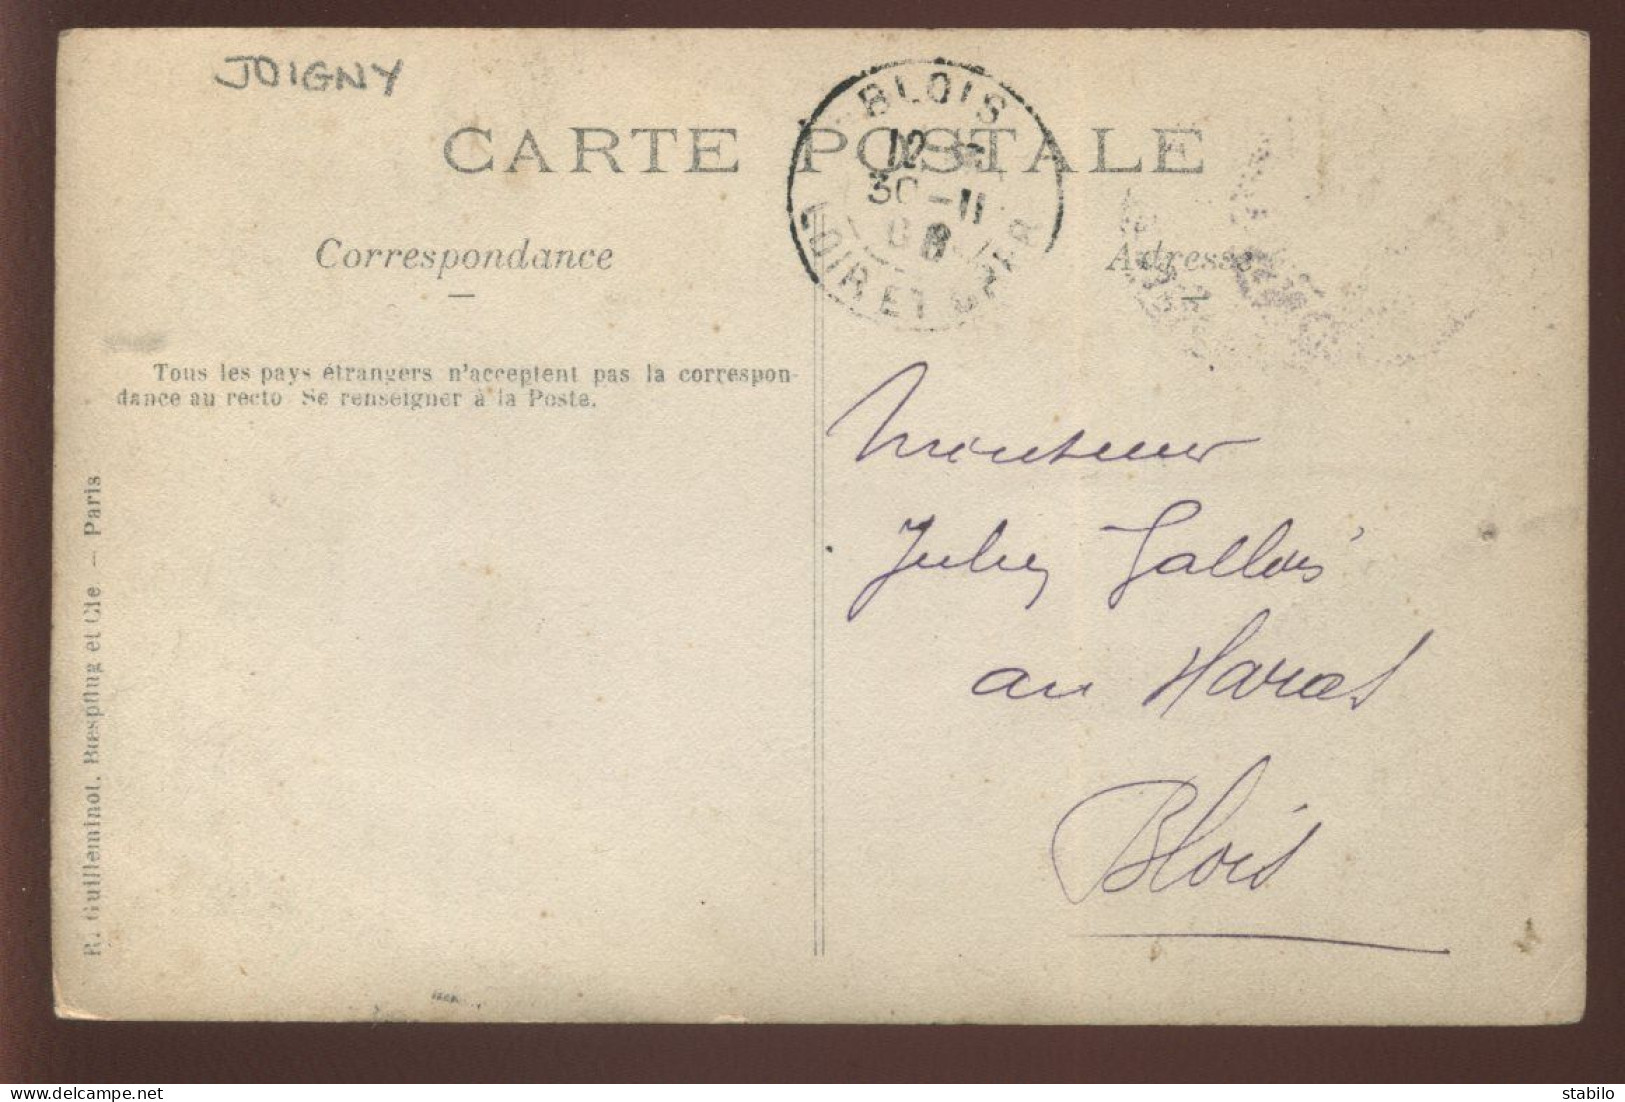 JOIGNY
CARTE POSTALE
BLOIS
12
30-11
08
LOIR ET CHER
Correspondance
Adresse
Tous les pays étrangers n'acceptent pas la correspon-
dance au recto Se renseigner à la Poste.
R. Guilleminot, Bœspflug et Cie — Paris
Monsieur
Jules Gallois
au Haras
Blois
stabilo